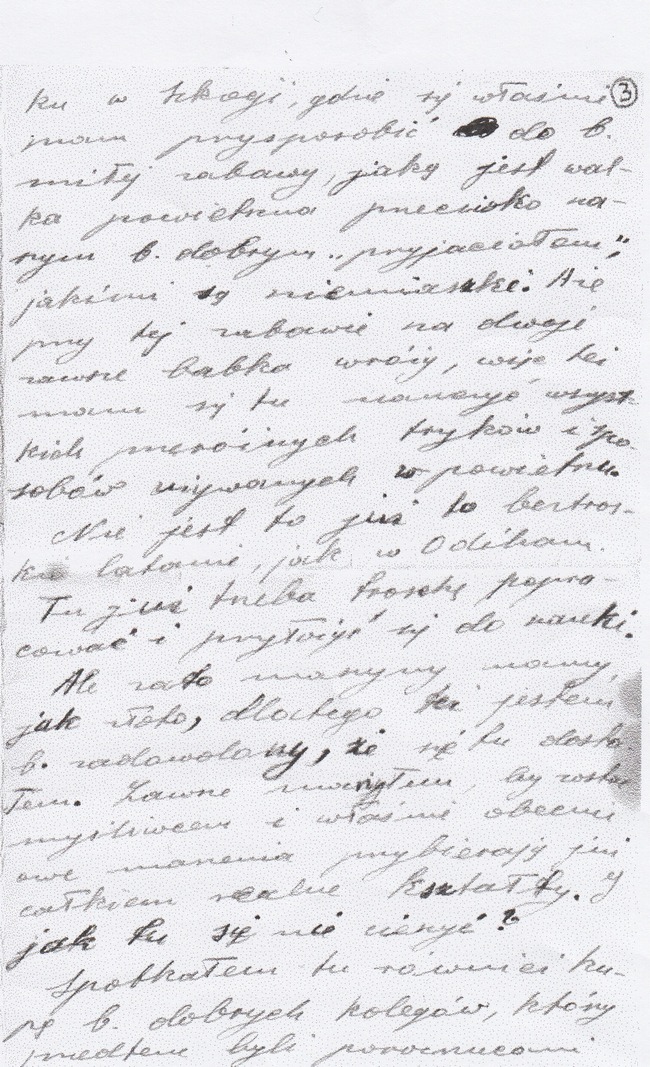 ku w Szkocji, gdzie się właśnie ③
mam przysposobić do b.
miłej zabawy, jaką jest wal-
ka powietrzna przeciwko na-
szym b. dobrym „przyjaciołom",
jakimi są niemiaszki. Ale
przy tej zabawie na dwoje
zawsze babka wróży, więc też
mam się tu nauczyć wszyst-
kich przeróżnych tryków i spo-
sobów używanych w powietrzu.
Nie jest to już to beztros-
kie latanie, jak w Odiham.
Tu już trzeba troszkę popra-
cować i przyłożyć się do nauki.
Ale za to maszyny mamy,
jak złoto, dlatego też jestem
b. zadowolony, że się tu dosta
łem. Zawsze marzyłem, by zostać
myśliwcem i właśnie obecnie
owe marzenia przybierają już
całkiem realne kształty. I
jak tu się nie cieszyć?
Spotkałem tu również ku-
pę b. dobrych kolegów, którzy
przedtem byli porucznikami